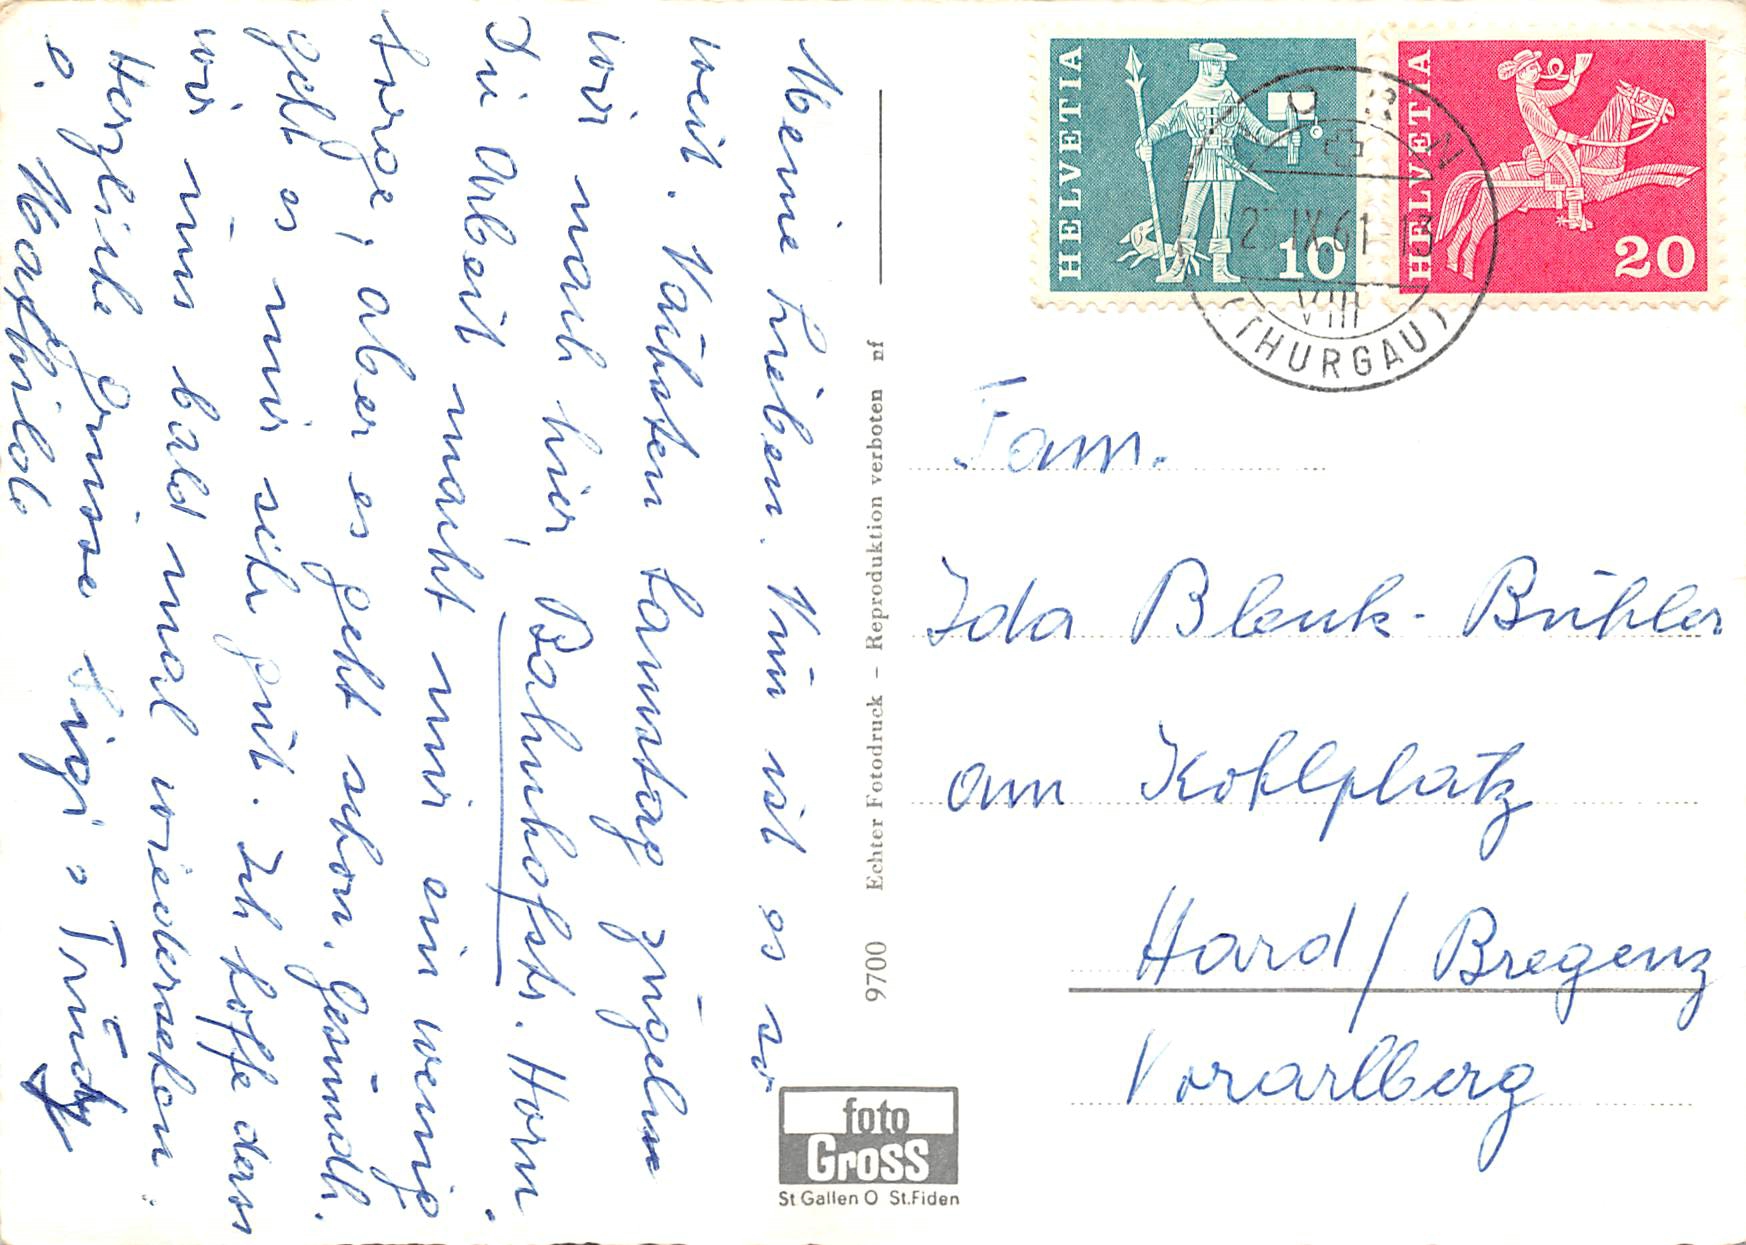 Meine Lieben. Nun ist es so
weit. Nächsten Samstag zügeln
wir nach hier, Bahnhofstr. Horn.
Die Arbeit macht mir ein wenig
Sorge, aber es geht schon. Gesundh.
geht es mir sehr gut. Ich hoffe dass
wir uns bald mal wiedersehen.
Herzliche Grüsse Sigi, Trudy
o. Mathilde
9700 Echter Fotodruck – Reproduktion verboten nf
foto
Gross
St Gallen O St.Fiden
HELVETIA
10
HELVETIA
20
HORN
IX.61
13
VIII
(THURGAU)
Fam.
Ida Blenk-Bühler
am Kohlplatz
Hard/Bregenz
Vorarlberg